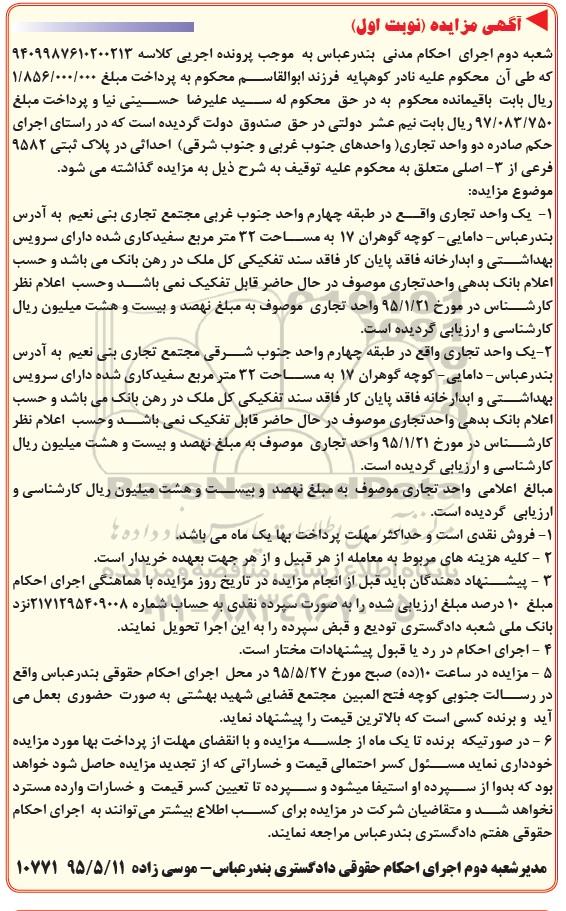 آگهی مزایده (نوبت اول)
شعبه دوم اجرای احکام مدنی بندرعباس به موجب پرونده اجریی کلاسه ۹۴۰۹۹۸۷۶۱۰۲۰۰۲۱۳
که طی آن محکوم علیه نادر کوهپایه فرزند ابوالقاسم محکوم به پرداخت مبلغ ۱/۸۵۶/۰۰۰/۰۰۰
ریال بابت باقیمانده محکوم به در حق محکوم له سید علیرضا حسینی نیا و پرداخت مبلغ
۹۷/۰۸۳/۷۵۰ ریال بابت نیم عشر دولتی در حق صندوق دولت گردیده است که در راستای اجرای
حکم صادره دو واحد تجاری( واحدهای جنوب غربی و جنوب شرقی) احداثی در پلاک ثبتی ۹۵۸۲
فرعی از ۳- اصلی متعلق به محکوم علیه توقیف به شرح ذیل به مزایده گذاشته می شود.
موضوع مزایده:
۱- یک واحد تجاری واقع در طبقه چهارم واحد جنوب غربی مجتمع تجاری بنی نعیم به آدرس
بندرعباس- دامایی- کوچه گوهران ۱۷ به مساحت ۳۲ متر مربع سفیدکاری شده دارای سرویس
بهداشتی و ابدارخانه فاقد پایان کار فاقد سند تفکیکی کل ملک در رهن بانک می باشد و حسب
اعلام بانک بدهی واحدتجاری موصوف در حال حاضر قابل تفکیک نمی باشد وحسب اعلام نظر
کارشناس در مورخ ۹۵/۱/۲۱ واحد تجاری موصوف به مبلغ نهصد و بیست و هشت میلیون ریال
کارشناسی و ارزیابی گردیده است.
۲-یک واحد تجاری واقع در طبقه چهارم واحد جنوب شرقی مجتمع تجاری بنی نعیم به آدرس
بندرعباس- دامایی- کوچه گوهران ۱۷ به مساحت ۳۲ متر مربع سفیدکاری شده دارای سرویس
بهداشتی و ابدارخانه فاقد پایان کار فاقد سند تفکیکی کل ملک در رهن بانک می باشد و حسب
اعلام بانک بدهی واحدتجاری موصوف در حال حاضر قابل تفکیک نمی باشد وحسب اعلام نظر
کارشناس در مورخ ۹۵/۱/۲۱ واحد تجاری موصوف به مبلغ نهصد و بیست و هشت میلیون ریال
کارشناسی و ارزیابی گردیده است.
مبالغ اعلامی واحد تجاری موصوف به مبلغ نهصد و بیست و هشت میلیون ریال کارشناسی و
ارزیابی گردیده است.
۱- فروش نقدی است و حداکثر مهلت پرداخت بها یک ماه می باشد.
۲ - کلیه هزینه های مربوط به معامله از هر قبیل و از هر جهت بعهده خریدار است.
۳ - پیشنهاد دهندگان باید قبل از انجام مزایده در تاریخ روز مزایده با هماهنگی اجرای احکام
مبلغ ۱۰ درصد مبلغ ارزیابی شده را به صورت سپرده نقدی به حساب شماره ۲۱۷۱۲۹۵۴۰۹۰۰۸نزد
بانک ملی شعبه دادگستری تودیع و قبض سپرده را به این اجرا تحویل نمایند.
۴ - اجرای احکام در رد یا قبول پیشنهادات مختار است.
۵ - مزایده در ساعت ۱۰(ده) صبح مورخ ۹۵/۵/۲۷ در محل اجرای احکام حقوقی بندرعباس واقع
در رسالت جنوبی کوچه فتح المبین مجتمع قضایی شهید بهشتی به صورت حضوری بعمل می
آید و برنده کسی است که بالاترین قیمت را پیشنهاد نماید.
۶ - در صورتیکه برنده تا یک ماه از جلسه مزایده و با انقضای مهلت از پرداخت بها مورد مزایده
خودداری نماید مسئول کسر احتمالی قیمت و خساراتی که از تجدید مزایده حاصل شود خواهد
بود که بدوا از سپرده او استیفا میشود و سپرده تا تعیین کسر قیمت و خسارات وارده مسترد
نخواهد شد و متقاضیان شرکت در مزایده برای کسب اطلاع بیشتر می‌توانند به اجرای احکام
حقوقی هفتم دادگستری بندرعباس مراجعه نمایند.
مدیرشعبه دوم اجرای احکام حقوقی دادگستری بندرعباس- موسی زاده ۹۵/۵/۱۱ ۱۰۷۷۱
ParsNamadData
پایگاه اطلاع رسانی مناقصه و مزایده
۰۲۱-۸۸۳۴۹۶۷۰-۵